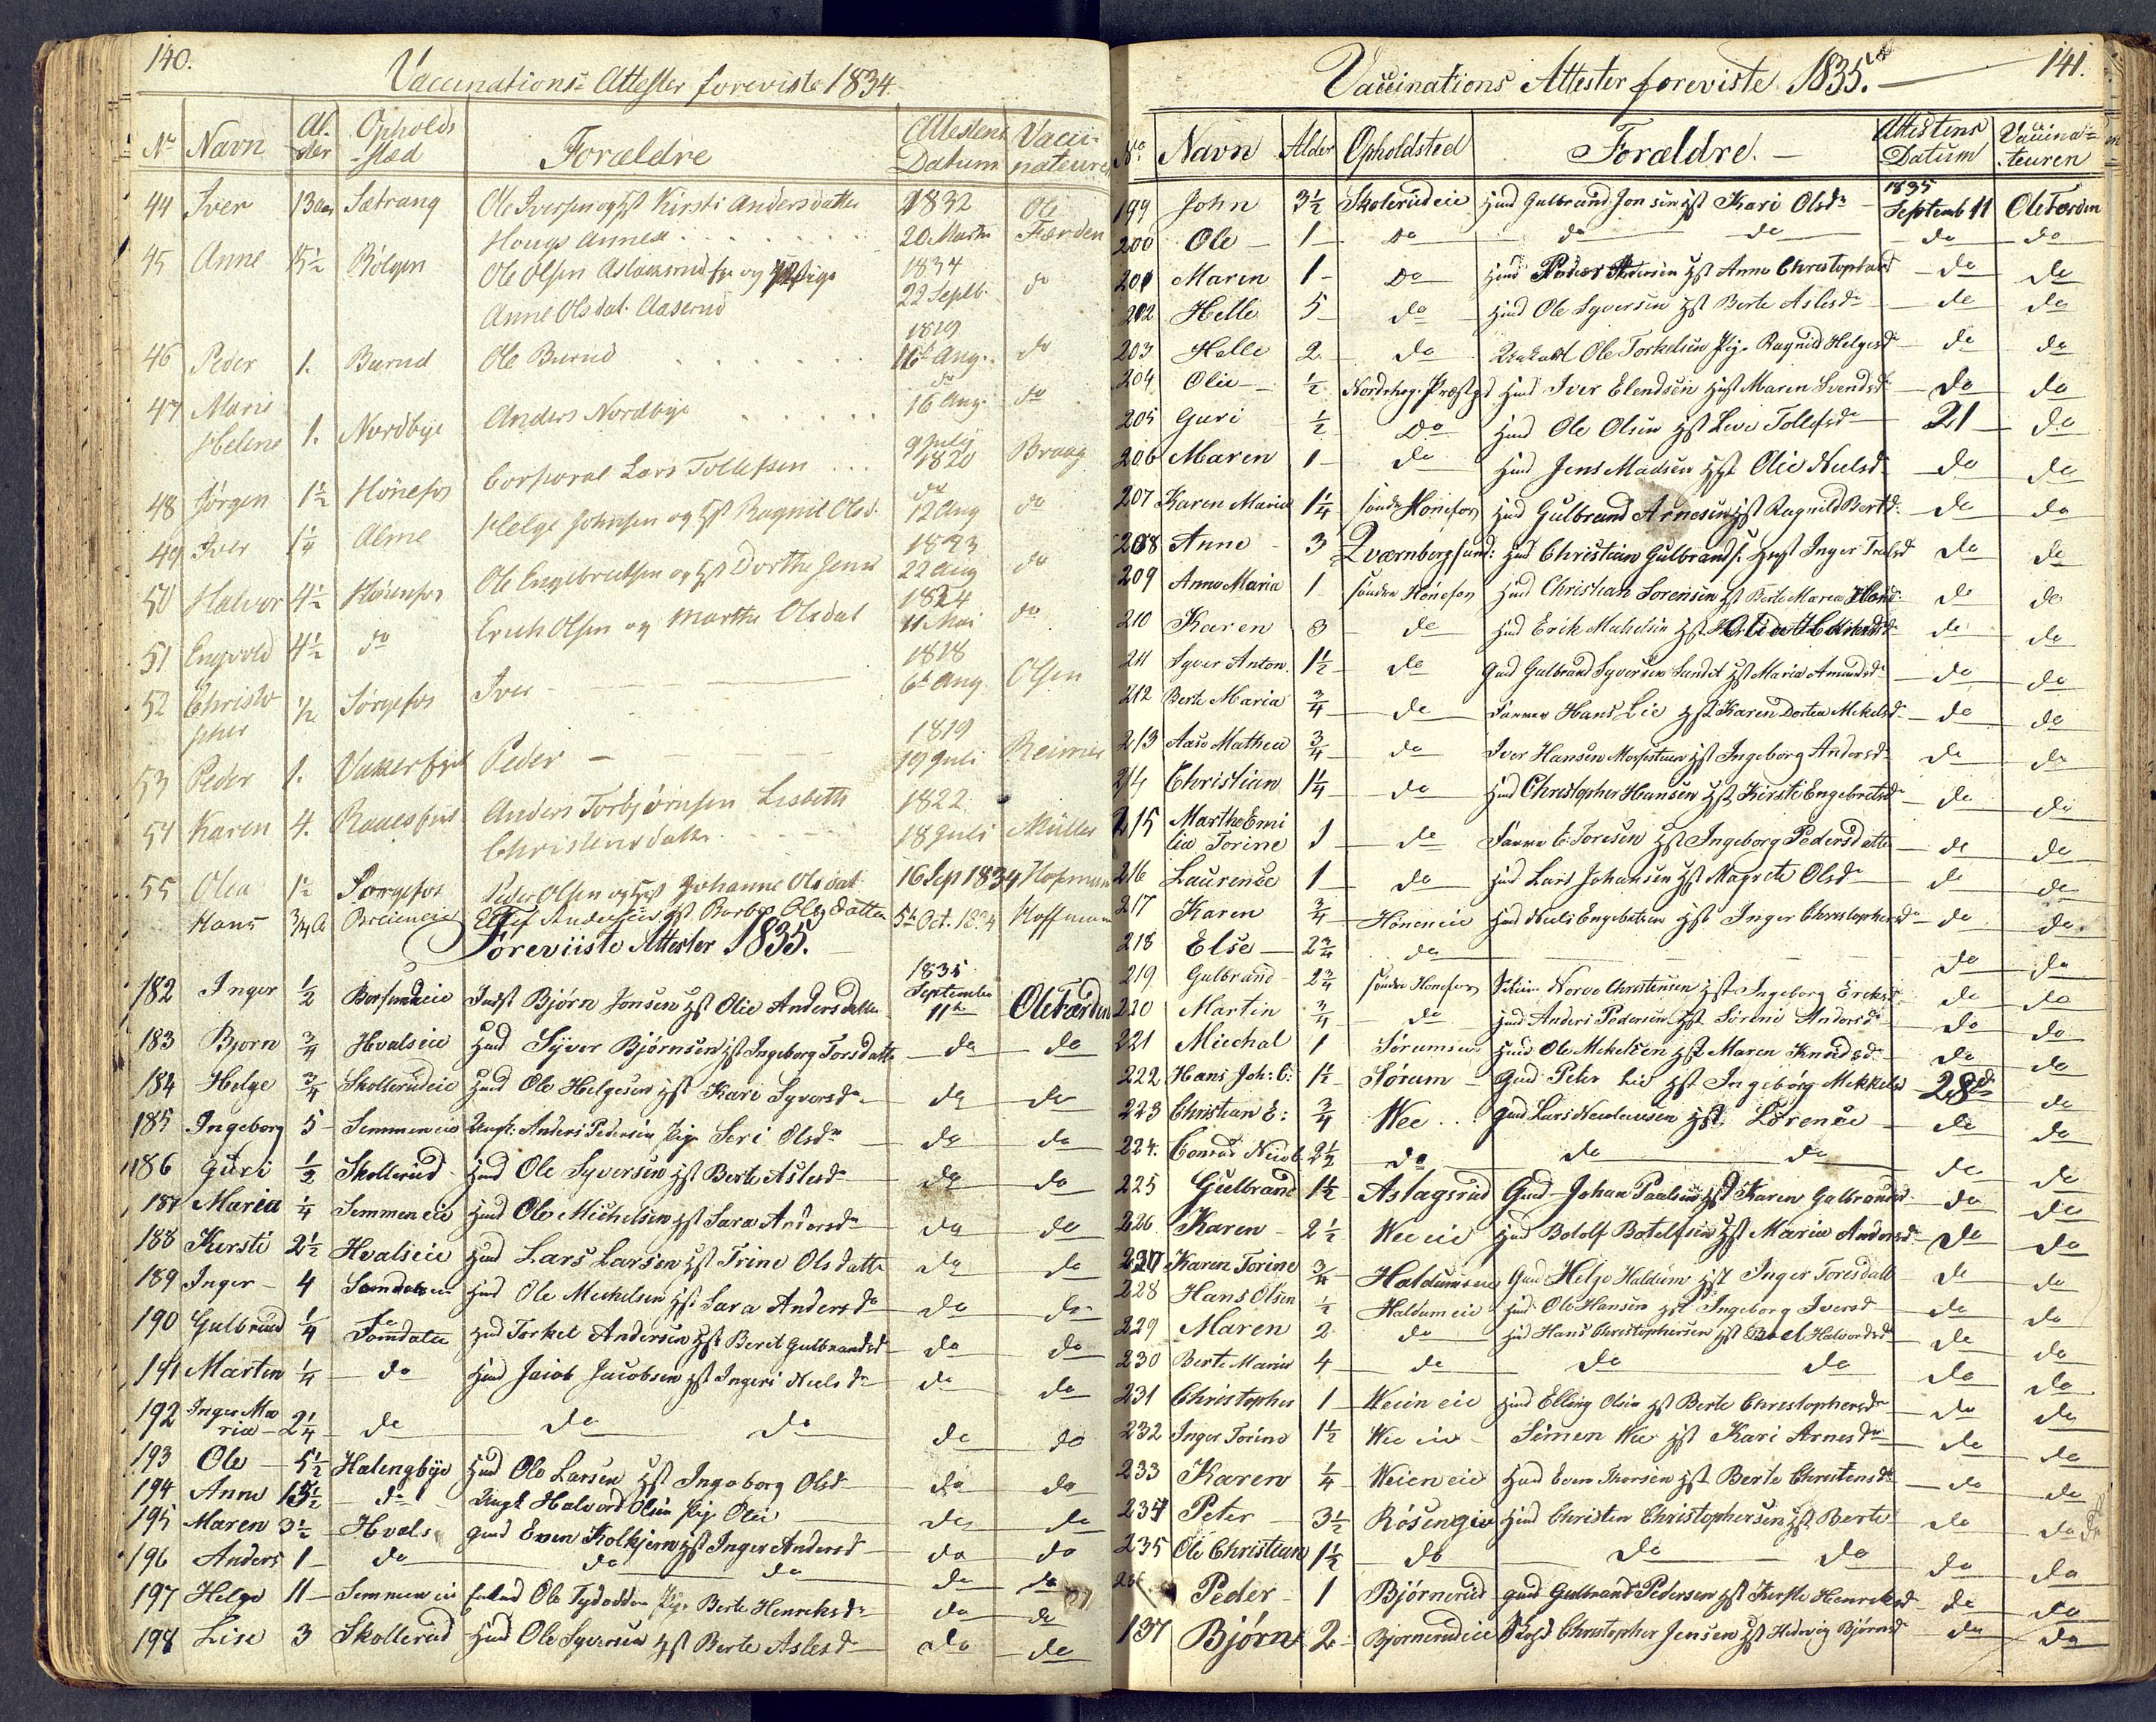 140.
Vaccinations- Attester foreviste 1834.
No Navn Al-der Opholds-sted Forældre Attestens Datum Vacci-nateuren
44 Iver 13 aar Sætrang Ole Iversen og Hst Kirsti Andersdatter 1832 Ole
Hougs Annex 20 Marts Færden
45 Anne 15½ Bølgen Ole Olsen Aslaksrud og Pige 1834
Anne Olsdat. Aaserud 22 Septb. do
46 Peder 1. Burud Ole Burud 1819 16d Aug. do
47 Marie do
Helene 1. Nordbye Anders Nordbye 16 Aug. do
48 Jørgen 1½ Hønefos Corporal Lars Tollefsen 9 July 1820 Braag
49 Iver 1¼ Alme Helge Johnsen og Hst Ragnil Olsd. do 12 Aug do
50 Halvor 4½ Hønefos Ole Engebretsen og Hst Dorthe Jensd 1823 22 Aug do
51 Engvold 4½ do Erich Olsen og Marthe Olsdat 1824 11 Mai do
52 Christo-
pher ½ Sørgefos Iver 1818 6d Aug. Olsen
53 Peder 1. Vakerfieret Peder 1819 19 Juli Reimers
54 Karen 4. Anders Torbjørnsen Lisbeth 1822
Christensdatter 18 Juli Müller
55 Olea 1½ Sørgefos Peder Olsen og Hst Johanne Olsdat 16 Sep 1834 Hofmann
Hans ¾ A Andersen Hst Barbro Olsdatter 5t Oct. 1834 Hoffmann
Foreviiste Attester 1835.
182 Inger ½ Indst Bjørn Jonsen Hst Olie Andersdatter 1835 September 11te Ole Færden
183 Bjørn ¾ Hvalseie Hmd Syver Bjørnsen Hst Ingeborg Torsdatter do do
184 Helge ¾ Skollerudeie Hmd Ole Helgesen Hst Kari Syversdr do do
185 Ingeborg 5 Semmeneie Ungk: Anders Pedersen Pige Seri Olsdr do do
186 Guri ½ Skollerud Hmd Ole Syversen Hst Berte Aslesdr do do
187 Maria ¼ Semmeneie Hmd Ole Michelsen Hst Sara Andersdr do do
188 Kirsti 2½ Hvalseie Hmd Lars Larsen Hst Trine Olsdatter do do
189 Inger 4 Somdaleie Hmd Ole Michelsen Hst Sara Andersdr do do
190 Gulbrand ¼ Somdalee Hmd Torkel Andersen Hst Berit Gulbrandsd do do
191 Martin ¼ do Hmd Jacob Jacobsen Hst Ingeri Nielsdr do do
192 Inger Ma
ria 2¼ do do do do do
193 Ole 5½ Halengbye Hmd Ole Larsen Hst Ingeborg Olsd do do
194 Anne 13½ do Ungk Halvord Olsen Pige Olei do do
195 Maren 3½ Hvals Gmd Even Kolkjern Hst Inger Andersd do do
196 Anders 1 do do do do do
197 Helge 11 Semmeneie Enkmd Ole Pige Berte Henriksdr do do
198 Lise 3 Skollerud Hmd Ole Syversen Hst Berte Aslesdr do do
141.
Vaccinations Attester foreviste 1835.
No. Navn Alder Opholdsted Forældre. Attestens Datum Vaccina-teuren
199 John 3½ Skolerudeie Hmd Gulbrand Jonsen Hst Kari Olsdr 1835 Septemb 11 Ole Færden
200 Ole 1 Do do do do do
201 Maren 1 Do Hmd Peder Hst Anne Christophersd do do
202 Helle 5 do Hmd Ole Syversen Hst Berte Aslesdr do do
203 Helle 2 do Ole Torkelsen Pige Ragnild Helgesdr do do
204 Olie ½ Nordrehog. Præstgd Hmd Iver Elendsen Hst Maren Svendsdr do do
205 Guri ½ Do Hmd Ole Olsen Hst Live Tollefsdr 21 do
206 Maren 1 do Hmd Jens Madsen Hst Olie Nielsd do do
207 Karen Maria 1¼ søndre Honefos Hmd Gulbrand Arnesen Hst Ragnild Bertd. do do
208 Anne 3 Qværnbergsund: Hmd Christian Gulbrands. Hst Inger do do
209 Anne Maria 1 søndre Hønefos Hmd Christian Sorensen Hst Berte Maria do do
210 Karen 3 do Hmd Erik Hst do do
211 Syver Anton. 1½ do Gmd Gulbrand Syversen Sundet Hst Maria Amundsdr do do
212 Berte Maria ¾ do Farver Hans Lie Hst Karen Dortea Mekelsd do do
213 Aase Mathea ¾ do Iver Hansen Hst Ingeborg Andersdr do do
214 Christian 1¼ do Hmd Christopher Hansen Hst Kirsti Engebretsdr do do
215 Marthe Emi
lia Torine 1 do Farver E: Toresen Hst Ingeborg Pedersdatter do do
216 Laurence 1 do Hmd Lars Johansen Hst Magrete Olsdr do do
217 Karen ¾ Høneneie Hmd Niels Engebretsen Hst Inger Christophersdr do do.
218 Else 2¾ do do do
219 Gulbrand 2¾ søndre Honefos Norvo Christensen Hst Ingeborg Ericksd do do
220 Martin ¾ do Hmd Anders Pedersen Hst Sirene Andersdr do do
221 Miechal 1 Sørumseie Hmd Ole Mekelsen Hst Maren Knudsdr do do
222 Hans Joh: C: 1½ Sørum Gmd Peter Lie Hst Ingeborg Mekkelsd 28de do
223 Christian E: ¾ Wee Gmd Lars Nicolaisen Hst Lorense do do
224. Conrad Nicol 2½ do do do do do
225 Gulbrand 1½ Aslagsrud Gmd Johan Paulsen Hst Karen Galbrandsd do do
226 Karen 2½ Wee eie Hmd Bololf Botelfsen Hst Maria Andersd do do
227 Karen Torine ¾ Haldumseie Gmd Helge Haldum Hst Inger Toresdatt do do
228 Hans Olsen ½ Haldumeie Hmd Ole Hansen Hst Ingeborg Iversd do do
229 Maren 2 do Hmd Hans Christophersen Hst Boel Halvordsdr do do
230 Berte Maria 4 do do do do do
231 Christopher 1 Weien eie Hmd Elling Olsen Hst Berte Christophersdr do do
232 Inger Torine 1½ Wee eie Simen Wee Hst Kari Arnesdr do do
233 Karen ¼ Weieneie Hmd Even Thorsen Hst Berte Christensdr do do
234 Peter 3½ Rösengie Hmd Christen Christophersen Hst Berte do do
235 Ole Christian 1½ do do do do do
236 Peder 1 Bjørnerud Gmd Gulbrand Pedersen Hst Kirstie Henriksd do do
137 Bjørn 2 Bjørnerudeie Christopher Jensen Hst Hedevig Bjørnsd do do